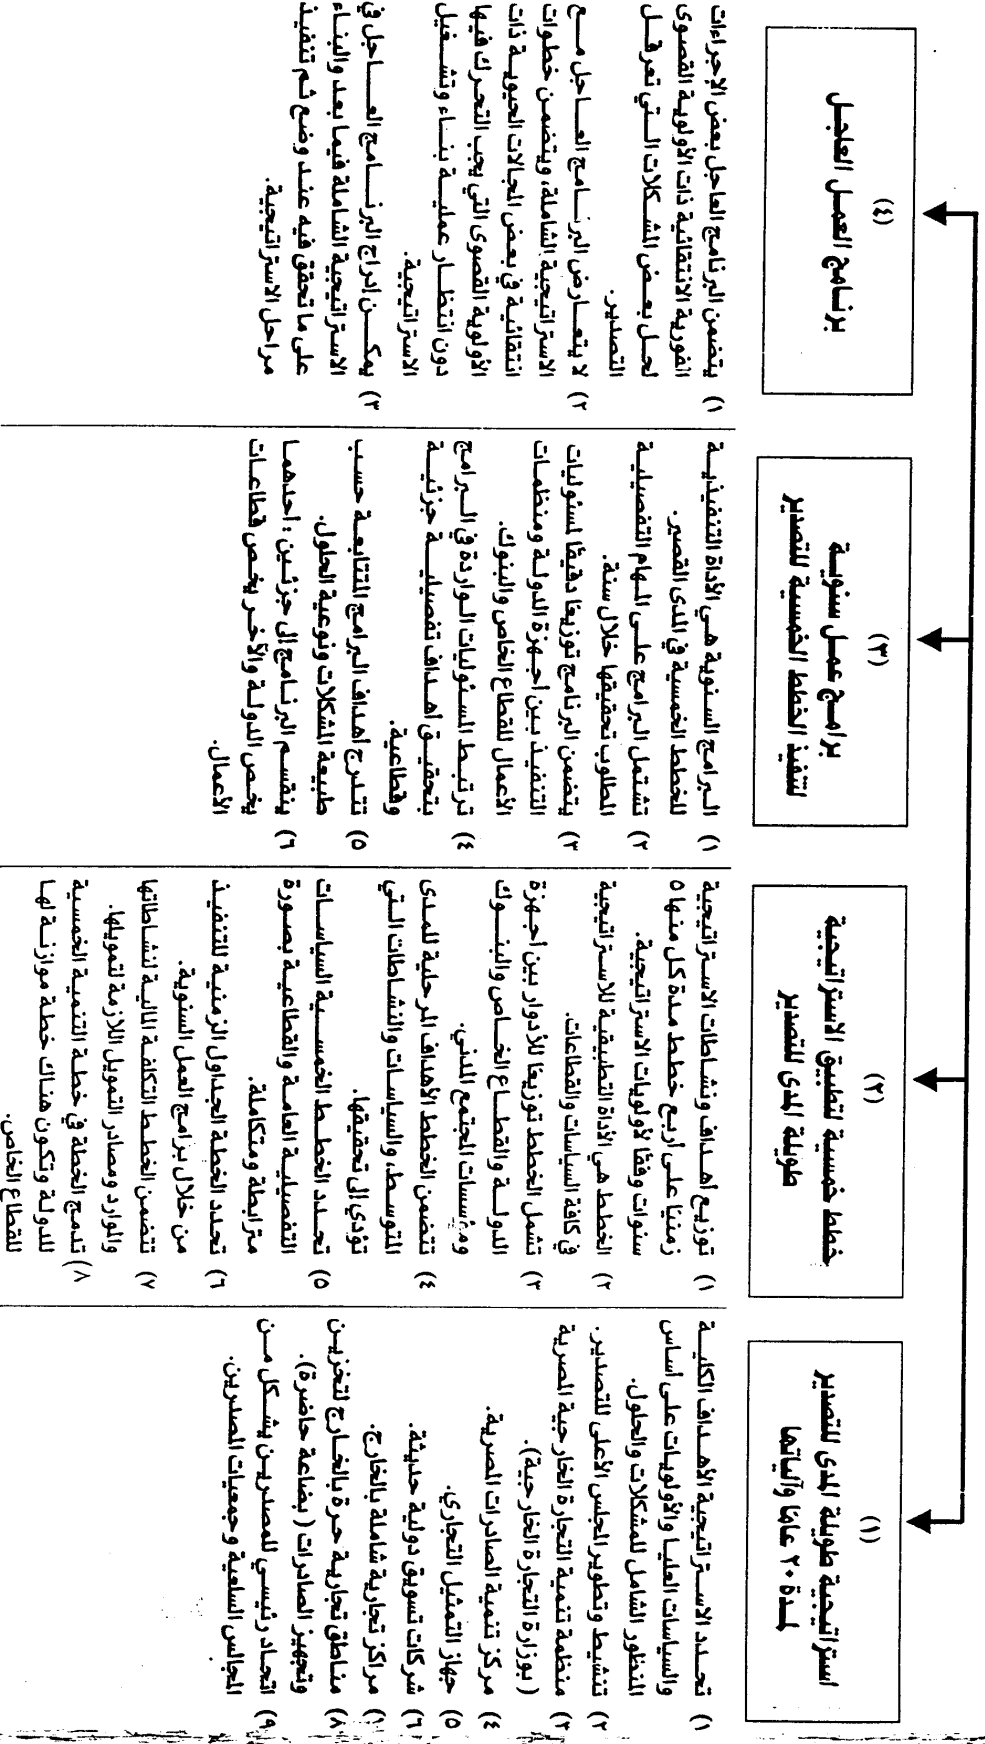 (١)
استراتيجية طويلة المدى للتصدير
لمدة ٢٠ عامًا وآلياتها
١) تحدد الاستراتيجية الأهداف الكلية
والسياسات العليا والأولويات على أساس
المنظور الشامل للمشكلات والحلول.
٢) تنشيط وتطوير المجلس الأعلى للتصدير.
٣) منظمة تنمية التجارة الخارجية المصرية
(بوزارة التجارة الخارجية).
٤) مركز تنمية الصادرات المصرية.
٥) جهاز التمثيل التجاري.
٦) شركات تسويق دولية حديثة.
مراكز تجارية شاملة بالخارج.
٨) مناطق تجارية حرة بالخارج لتخزين
وتجهيز الصادرات (بضاعة حاضرة).
٩) اتحاد رئيسي للمصدرين يشكل من
المجالس السلعية وجمعيات المصدرين.
(٢)
خطط خمسية لتطبيق الاستراتيجية
طويلة المدى للتصدير
١) توزيع أهداف ونشاطات الاستراتيجية
زمنيا على أربع خطط مدة كل منها ٥
سنوات وفقًا لأولويات الاستراتيجية.
٢) الخطط هي الأداة التطبيقية للاستراتيجية
في كافة السياسات والقطاعات.
٣) تشمل الخطط توزيعًا للأدوار بين أجهزة
الدولة والقطاع الخاص والبنوك
ومؤسسات المجتمع المدني.
٤) تتضمن الخطط الأهداف المرحلية للمدى
المتوسط، والسياسات والنشاطات التي
تؤدي إلى تحقيقها.
٥) تحدد الخطط الخمسية السياسات
التفصيلية العامة والقطاعية بصورة
مترابطة ومتكاملة.
٦) تحدد الخطة الجداول الزمنية للتنفيذ
من خلال برامج العمل السنوية.
٧) تتضمن الخطط التكلفة المالية لنشاطاتها
والموارد ومصادر التمويل اللازمة لتمويلها.
٨) تدمج الخطة في خطة التنمية الخمسية
للدولة وتكون هناك خطة موازنة لها
للقطاع الخاص.
(٣)
برامج عمل سنوية
لتنفيذ الخطط الخمسية للتصدير
١) البرامج السنوية هي الأداة التنفيذية
للخطط الخمسية في المدى القصير.
٢) تشتمل البرامج على المهام التفصيلية
المطلوب تحقيقها خلال سنة.
٣) يتضمن البرنامج توزيعًا دقيقًا لمسئوليات
التنفيذ بين أجهزة الدولة ومنظمات
الأعمال للقطاع الخاص والبنوك.
٤) ترتبط المسئوليات الواردة في البرامج
بتحقيق أهداف تفصيلية جزئية
وقطاعية.
٥) تتدرج أهداف البرامج المتتابعة حسب
طبيعة المشكلات ونوعية الحلول.
٦) ينقسم البرنامج إلى جزئين: أحدهما
يخص الدولة والآخر يخص قطاعات
الأعمال.
(٤)
برنامج العمل العاجل
١) يتضمن البرنامج العاجل بعض الإجراءات
الفورية الانتقائية ذات الأولوية القصوى
لحل بعض المشكلات التي تعرقل
التصدير.
٢) لا يتعارض البرنامج العاجل مع
الاستراتيجية الشاملة، ويتضمن خطوات
انتقائية في بعض المجالات الحيوية ذات
الأولوية القصوى التي يجب التحرك فيها
دون انتظار عملية بناء وتشغيل
الاستراتيجية.
٣) يمكن إدراج البرنامج العاجل في
الاستراتيجية الشاملة فيما بعد والبناء
على ما تحقق فيه عند وضع ثم تنفيذ
مراحل الاستراتيجية.